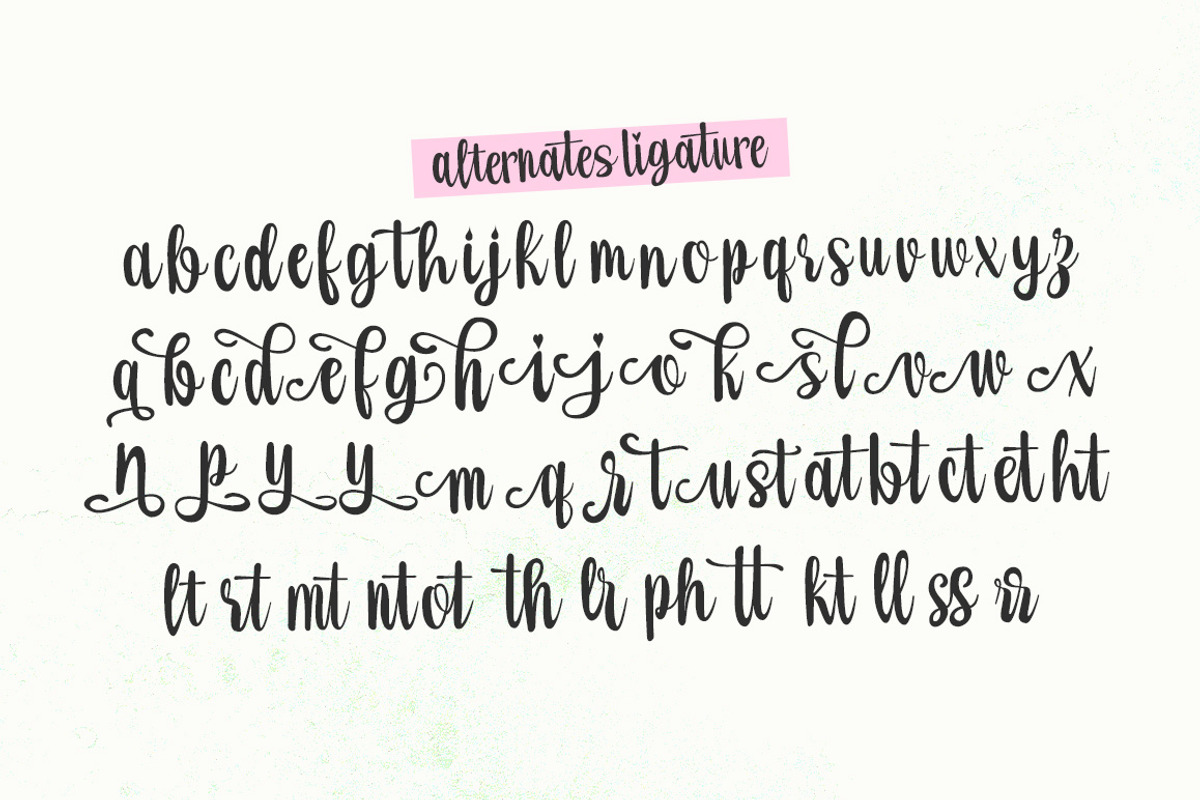 alternates ligature
abcdefgthijkl mnopqrsuvwxyz
abcdefghijok slvwx
npyy mqrtustatbtctetht
lt rt mt ntot th lr ph tt kt ll ss rr